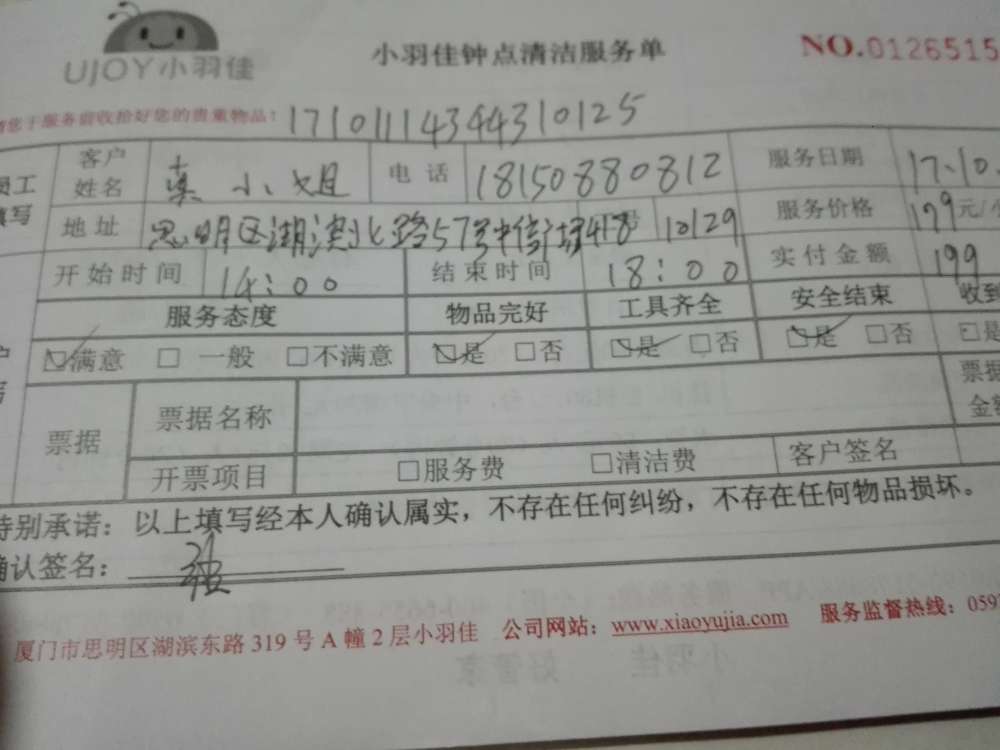 UJOY小羽佳
小羽佳钟点清洁服务单
NO.0126515
您于服务前收拾好您的贵重物品! 17101114344310125
员工填写
客户姓名 小姐 电话 18150880812 服务日期 17.10.
地址 思明区湖滨北路57号 1029 服务价格 199元/
开始时间 14:00 结束时间 18:00 实付金额 199
服务态度 物品完好 工具齐全 安全结束 收到
☑满意 □一般 □不满意 ☑是 □否 ☑是 □否 ☑是 □否 □是
票据 票据名称 票据金
开票项目 □服务费 □清洁费 客户签名
特别承诺：以上填写经本人确认属实，不存在任何纠纷，不存在任何物品损坏。
确认签名：
厦门市思明区湖滨东路319号A幢2层小羽佳 公司网站：www.xiaoyujia.com 服务监督热线：059